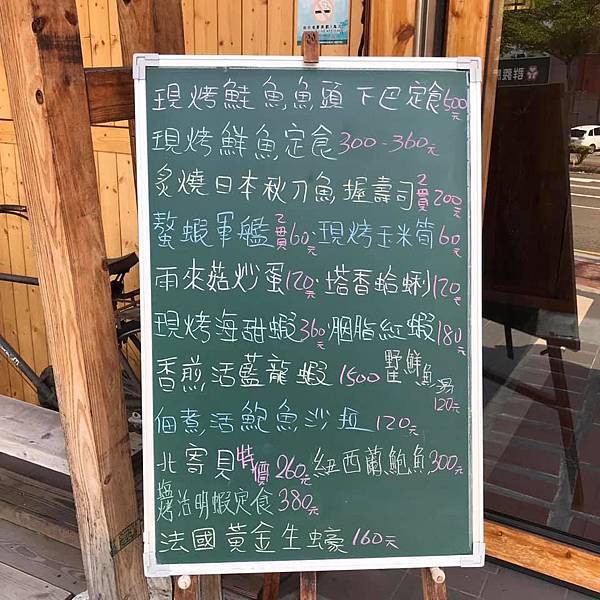 現烤鮭魚魚頭下巴定食500元
現烤鮮魚定食300-360元
炙燒日本秋刀魚握壽司2貫200元
螯蝦軍艦2貫60元·現烤玉米筍60元
雨來菇炒蛋120元·塔香蛤蜊120元
現烤海甜蝦360元·胭脂紅蝦180元
香煎活藍龍蝦1500 野生鮮魚湯120元
佃煮活鮑魚沙拉120元
北寄貝特價260元紐西蘭鮑魚300元
鹽烤活明蝦定食380元
法國黃金生蠔160元